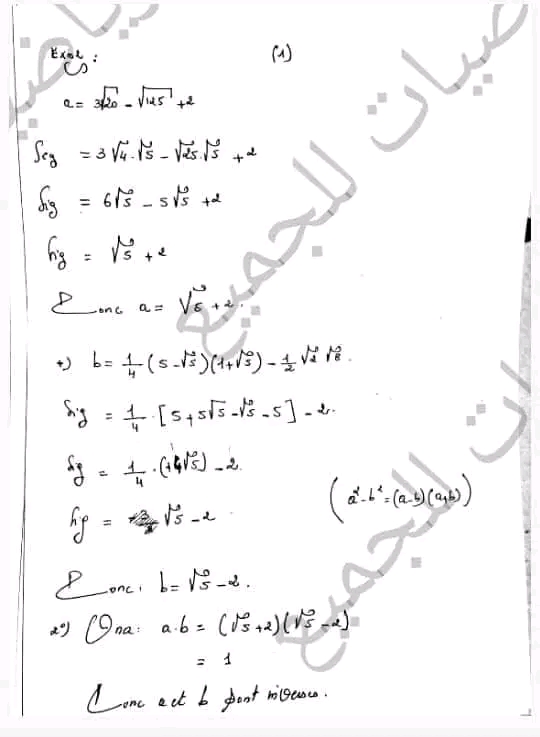 Exo1 : (1)
a = 3√20 - √125 + 2
Sig = 3√4.√5 - √25.√5 + 2
Sig = 6√5 - 5√5 + 2
Sig = √5 + 2
Donc a = √5 + 2.
+) b = 1/4 (5 - √5)(1 + √5) - 1/2 √2 √8.
Sig = 1/4 . [5 + 5√5 - √5 - 5] - 2.
Sig = 1/4 . (+4√5) - 2
Sig = √5 - 2
(a² - b² = (a-b)(a+b))
Donc : b = √5 - 2.
2°) On a : a.b = (√5 + 2)(√5 - 2)
= 1
Donc a et b sont inverses.
يات للجميع
ات للجميع